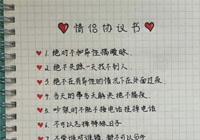 情侣协议书
1. 绝对不和异性搞暧昧
2. 绝不失踪一天找不到人
3. 绝不在有异性的情况下在外面过夜
4. 当天的事当天解决绝不隔夜
5. 吵架时不能手机关机挂掉电话
6. 不可以忘掉特殊日子